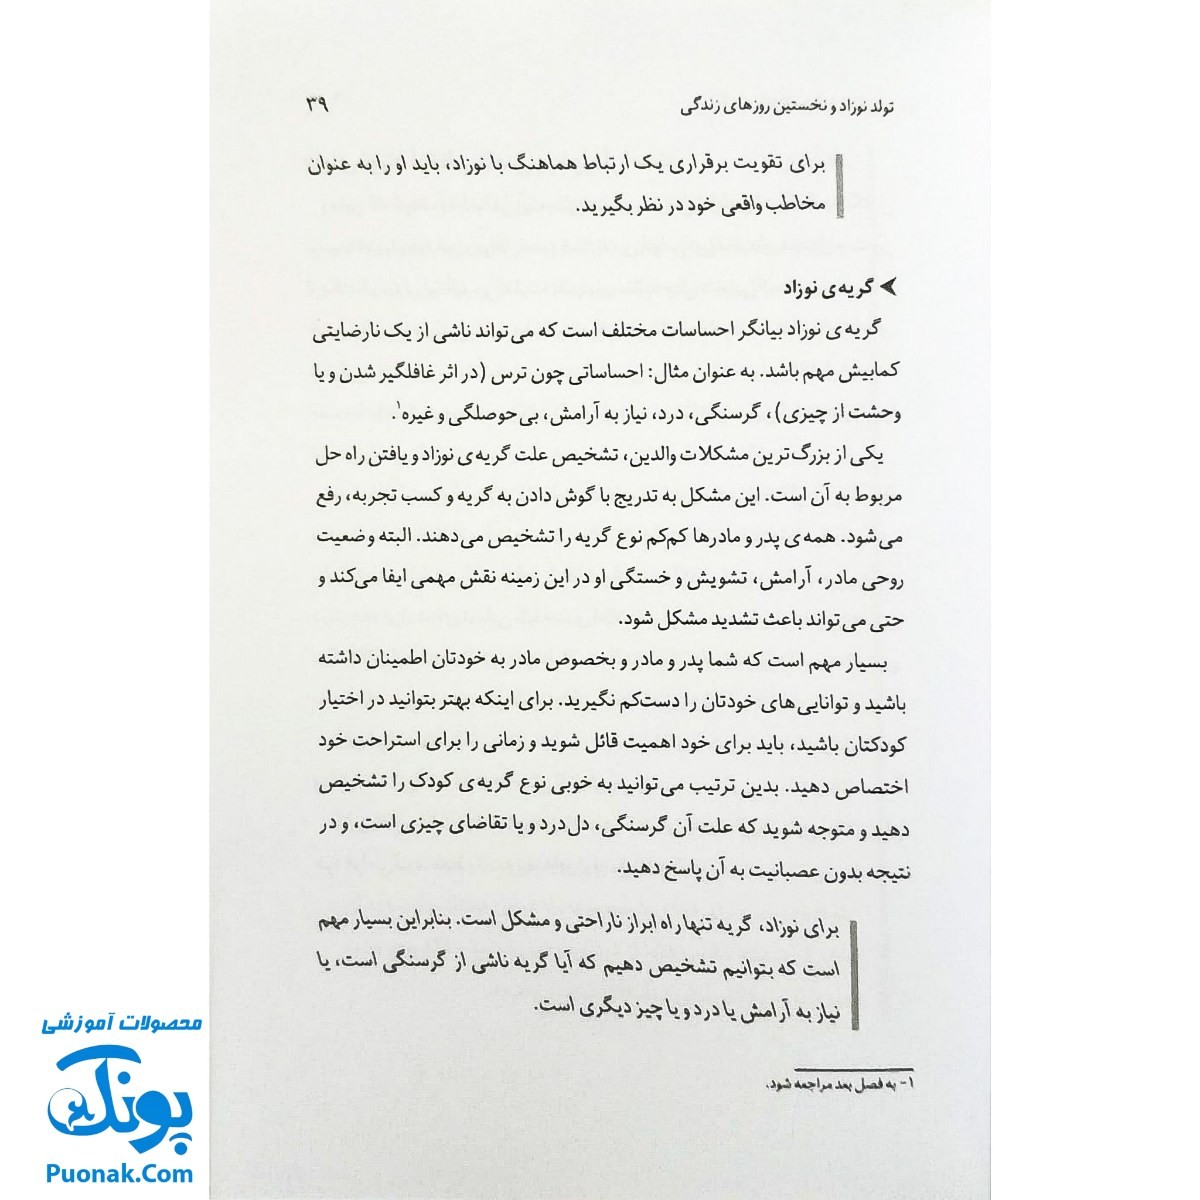 تولد نوزاد و نخستین روزهای زندگی ۳۹
برای تقویت برقراری یک ارتباط هماهنگ با نوزاد، باید او را به عنوان
مخاطب واقعی خود در نظر بگیرید.
گریه‌ی نوزاد
گریه‌ی نوزاد بیانگر احساسات مختلف است که می‌تواند ناشی از یک نارضایتی
کمابیش مهم باشد. به عنوان مثال: احساساتی چون ترس (در اثر غافلگیر شدن و یا
وحشت از چیزی)، گرسنگی، درد، نیاز به آرامش، بی‌حوصلگی و غیره۱.
یکی از بزرگ‌ترین مشکلات والدین، تشخیص علت گریه‌ی نوزاد و یافتن راه حل
مربوط به آن است. این مشکل به تدریج با گوش دادن به گریه و کسب تجربه، رفع
می‌شود. همه‌ی پدر و مادرها کم‌کم نوع گریه را تشخیص می‌دهند. البته وضعیت
روحی مادر، آرامش، تشویش و خستگی او در این زمینه نقش مهمی ایفا می‌کند و
حتی می‌تواند باعث تشدید مشکل شود.
بسیار مهم است که شما پدر و مادر و بخصوص مادر به خودتان اطمینان داشته
باشید و توانایی‌های خودتان را دست‌کم نگیرید. برای اینکه بهتر بتوانید در اختیار
کودکتان باشید، باید برای خود اهمیت قائل شوید و زمانی را برای استراحت خود
اختصاص دهید. بدین ترتیب می‌توانید به خوبی نوع گریه‌ی کودک را تشخیص
دهید و متوجه شوید که علت آن گرسنگی، دل‌درد و یا تقاضای چیزی است، و در
نتیجه بدون عصبانیت به آن پاسخ دهید.
برای نوزاد، گریه تنها راه ابراز ناراحتی و مشکل است. بنابراین بسیار مهم
است که بتوانیم تشخیص دهیم که آیا گریه ناشی از گرسنگی است، یا
نیاز به آرامش یا درد و یا چیز دیگری است.
۱- به فصل بعد مراجعه شود.
محصولات آموزشی
پونک
Puonak.Com